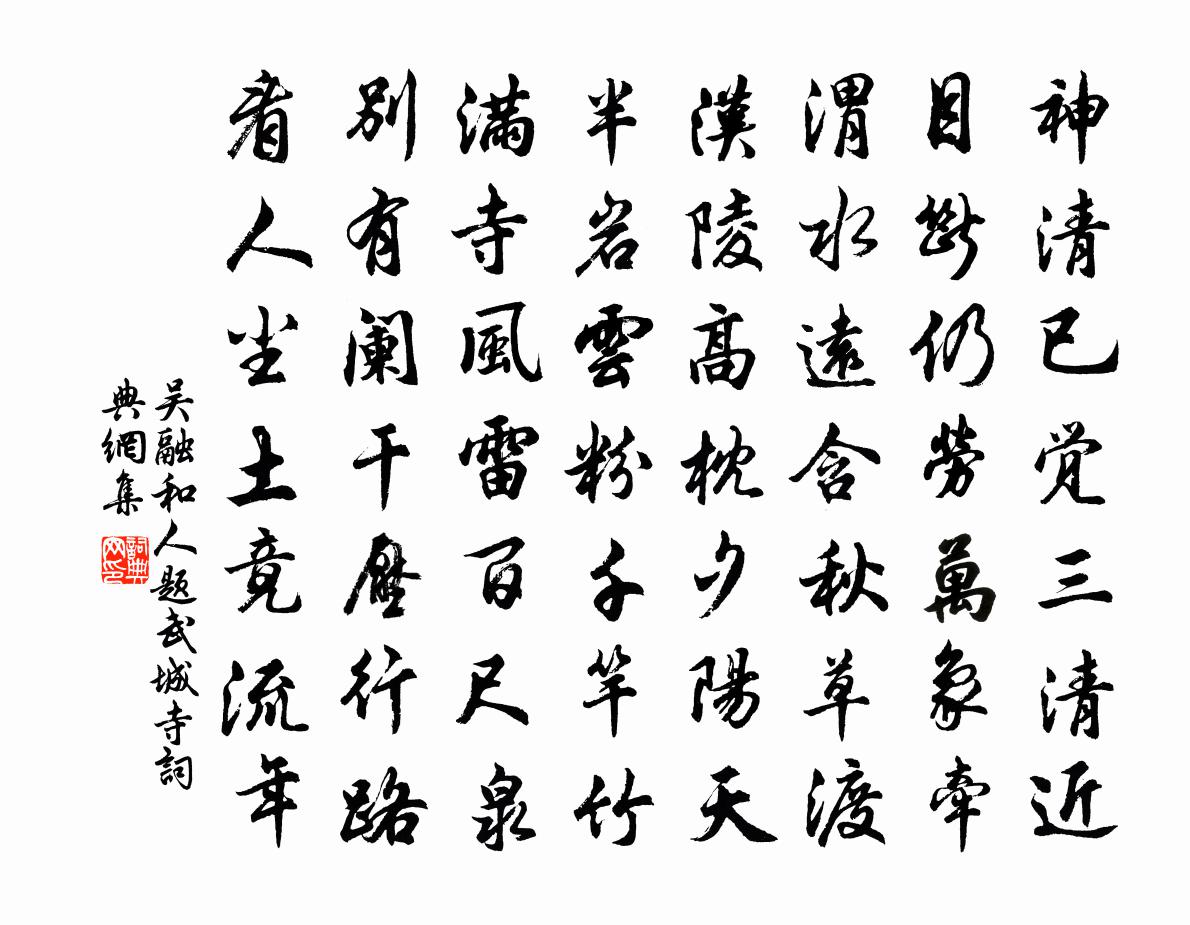 神清已觉三清近
目断仍劳萬象牽
渭水遠含秋草渡
漢陵高枕夕陽天
半岩雲粉千竿竹
滿寺風雷百尺泉
别有阑干壓行路
看人尘土竟流年
吴融和人题武城寺詞
典網集
詞典網印